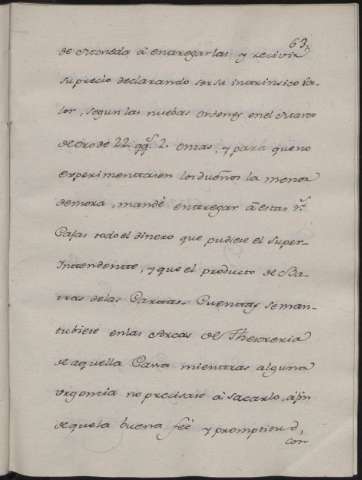 63,
de Moneda á entregarlas y recivir
su precio declarando ser su intrinsico va-
lor, segun las nuebas ordenes en el Marco
de Oro de 22 q.s 2. onzas, y para que no
experimentasen los dueños la menor
demora, mandé entregar á estas R.s
Cajas todo el dinero que pudiese el Super-
Intendente, y que el producto de Ba-
rras de las Cuentas se man-
tubiese en las Arcas de Thesoreria
de aquella Casa mientras alguna
urgencia no precisase á sacarlo, á fin
de que la buena feé y promptitud,
con